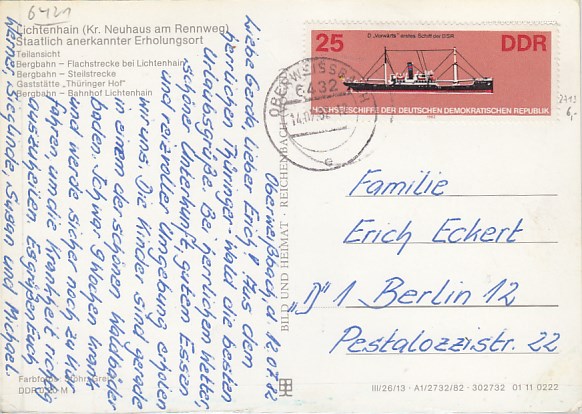 6421
Lichtenhain (Kr. Neuhaus am Rennweg)
Staatlich anerkannter Erholungsort
Teilansicht
Bergbahn – Flachstrecke bei Lichtenhain
Bergbahn – Steilstrecke
Gaststätte „Thüringer Hof"
Bergbahn – Bahnhof Lichtenhain
Oberweißbach, d. 12.07.82
Liebe Gerda, lieber Erich! Aus dem
herrlichen Thüringer-Wald die besten
Urlaubsgrüße. Bei herrlichen Wetter,
schöner Unterkunft, guten Essen
und reizvoller Umgebung erholen
wir uns. Die Kinder sind gerade
in einem der schönen Waldbäder
baden. Ich war 9 Wochen krank
und werde sicher noch zur Kur
fahren um die Krankheit richtig
auszuheilen. Es grüßen Euch
Werner, Sieglinde, Susan und Michael.
BILD UND HEIMAT · REICHENBACH
25
D „Vorwärts" erstes Schiff der DSR
DDR
HOCHSEESCHIFFE DER DEUTSCHEN DEMOKRATISCHEN REPUBLIK
1982
OBERWEISSBACH
6432
e
2713
6,-
Familie
Erich Eckert
„D" 1 Berlin 12
Pestalozzistr. 22
III/26/13 · A1/2732/82 · 302732 01 11 0222